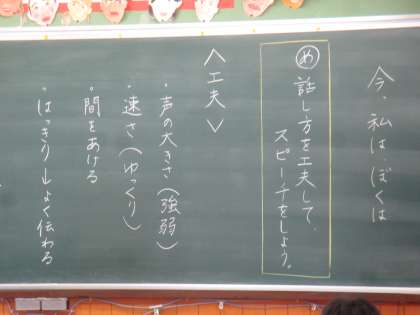 今、私は・ぼくは
め 話し方を工夫して、
スピーチをしよう。
＜工夫＞
・声の大きさ（強弱）
・速さ（ゆっくり）
・間をあける
・はっきり→よく伝わる